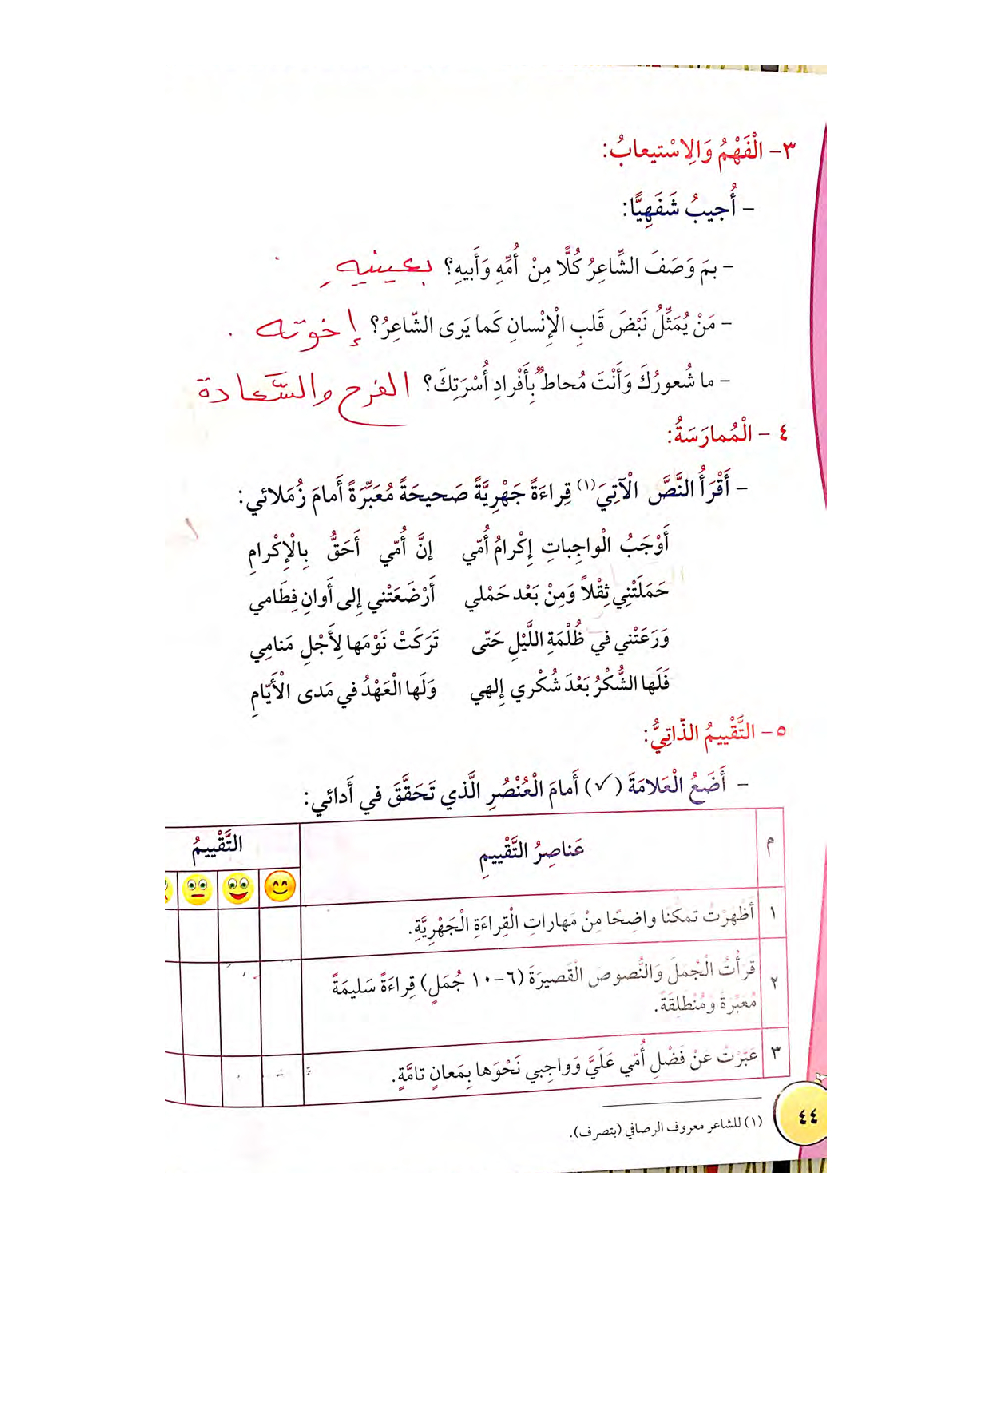 ٣- الْفَهْمُ وَالِاسْتيعابُ:
- أُجيبُ شَفَهِيًّا:
- بِمَ وَصَفَ الشّاعِرُ كُلًّا مِنْ أُمِّهِ وَأَبيهِ؟ بعينيه
- مَنْ يُمَثِّلُ نَبْضَ قَلبِ الْإِنْسانِ كَما يَرى الشّاعِرُ؟ إخوته .
- ما شُعورُكَ وَأَنْتَ مُحاطٌ بِأَفْرادِ أُسْرَتِكَ؟ الفرح والسَّعادة
٤ - الْمُمارَسَةُ:
- أَقْرَأُ النَّصَّ الْآتِيَ(١) قِراءَةً جَهْرِيَّةً صَحيحَةً مُعَبِّرَةً أَمامَ زُمَلائي:
أَوْجَبُ الْواجِباتِ إِكْرامُ أُمّي إنَّ أُمّي أَحَقُّ بِالْإِكْرامِ
حَمَلَتْنِي ثِقْلاً وَمِنْ بَعْد حَمْلي أَرْضَعَتْني إِلى أَوانِ فِطَامي
وَرَعَتْني في ظُلْمَةِ اللَّيْلِ حَتّى تَرَكَتْ نَوْمَها لِأَجْلِ مَنامِي
فَلَها الشُّكْرُ بَعْدَ شُكْري إلهي وَلَها الْعَهْدُ في مَدى الْأَيّامِ
٥- التَّقْييمُ الذّاتِيُّ:
- أَضَعُ الْعَلامَةَ (✓) أَمامَ الْعُنْصُرِ الَّذي تَحَقَّقَ في أَدائي:
م عَناصِرُ التَّقْييمِ التَّقْييمُ
١ أَظْهَرْتُ تمكُّنًا واضِحًا مِنْ مَهاراتِ الْقِراءَةِ الْجَهْرِيَّةِ.
٢ قَرَأْتُ الْجُمَلَ وَالنُّصوصَ الْقَصيرَةَ (٦-١٠ جُمَلٍ) قِراءَةً سَليمَةً
مُعَبِّرَةً وَمُنْطَلِقَةً.
٣ عَبَّرْتُ عَنْ فَضْلِ أُمّي عَلَيَّ وَواجِبي نَحْوَها بِمَعانٍ تامَّةٍ.
(١) للشاعر معروف الرصافي (بتصرف).
٤٤